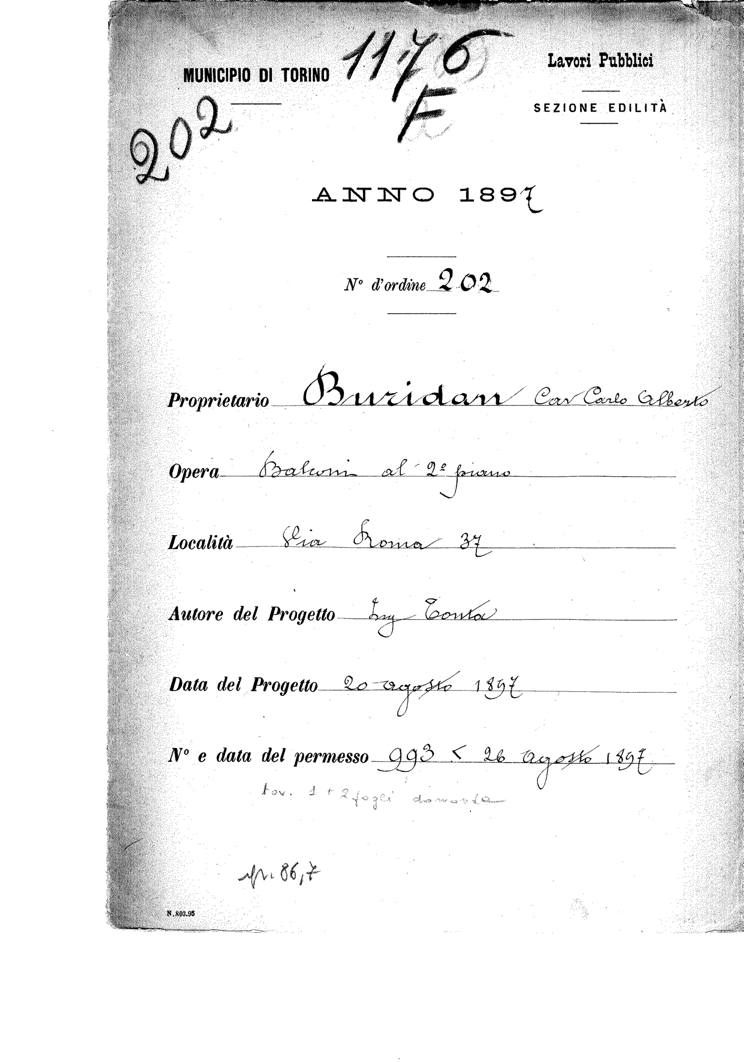 MUNICIPIO DI TORINO
1176
F
Lavori Pubblici
SEZIONE EDILITÀ
202
ANNO 1897
N° d'ordine 202
Proprietario Buridan Cav Carlo Alberto
Opera Balconi al 2° piano
Località Via Roma 37
Autore del Progetto Ing Tonta
Data del Progetto 20 agosto 1897
N° e data del permesso 993 < 26 agosto 1897
tav. 1 + 2 fogli domanda
86,7
N. 803.95